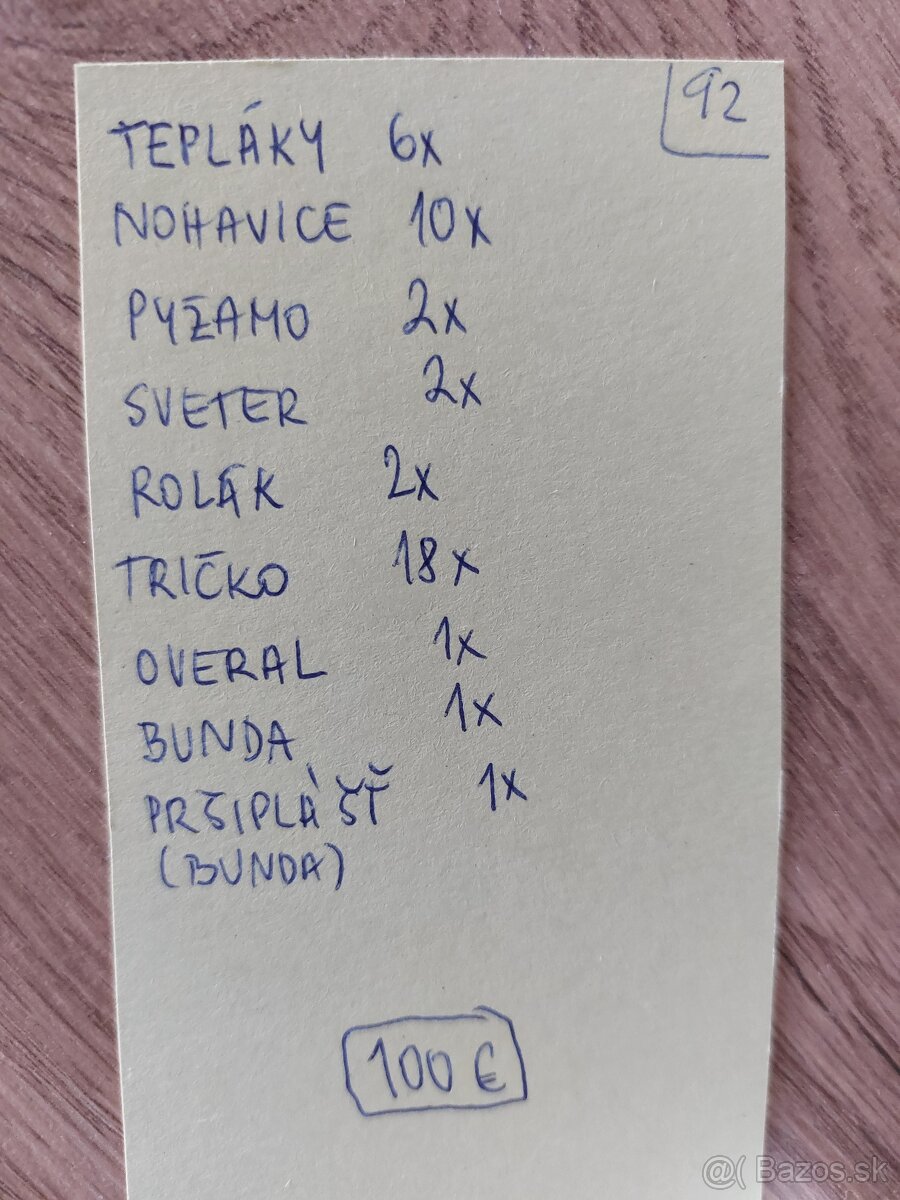 92
TEPLÁKY 6x
NOHAVICE 10x
PYŽAMO 2x
SVETER 2x
ROLÁK 2x
TRIČKO 18x
OVERAL 1x
BUNDA 1x
PRŠIPLÁŠŤ 1x
(BUNDA)
100 €
@( Bazos.sk